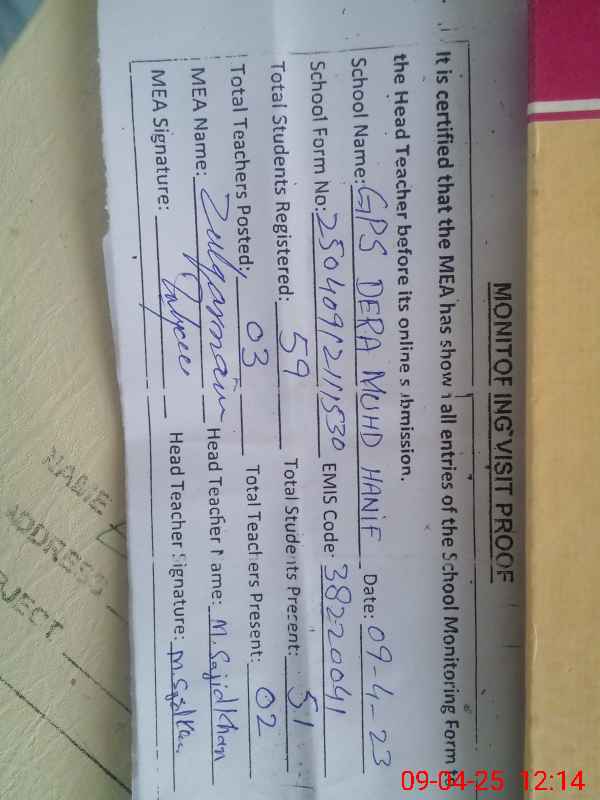 MONITORING VISIT PROOF
It is certified that the MEA has shown all entries of the School Monitoring Form to
the Head Teacher before its online submission.
School Name: GPS DERA MUHD HANIF Date: 09-4-23
School Form No: 250409121111530 EMIS Code: 38220041
Total Students Registered: 59 Total Students Present: 51
Total Teachers Posted: 03 Total Teachers Present: 02
MEA Name: Zulqarnain Head Teacher Name: M. Sajid Khan
MEA Signature: Head Teacher Signature: M. Sajid Khan
NAME
ADDRESS
JECT
09-04-25 12:14